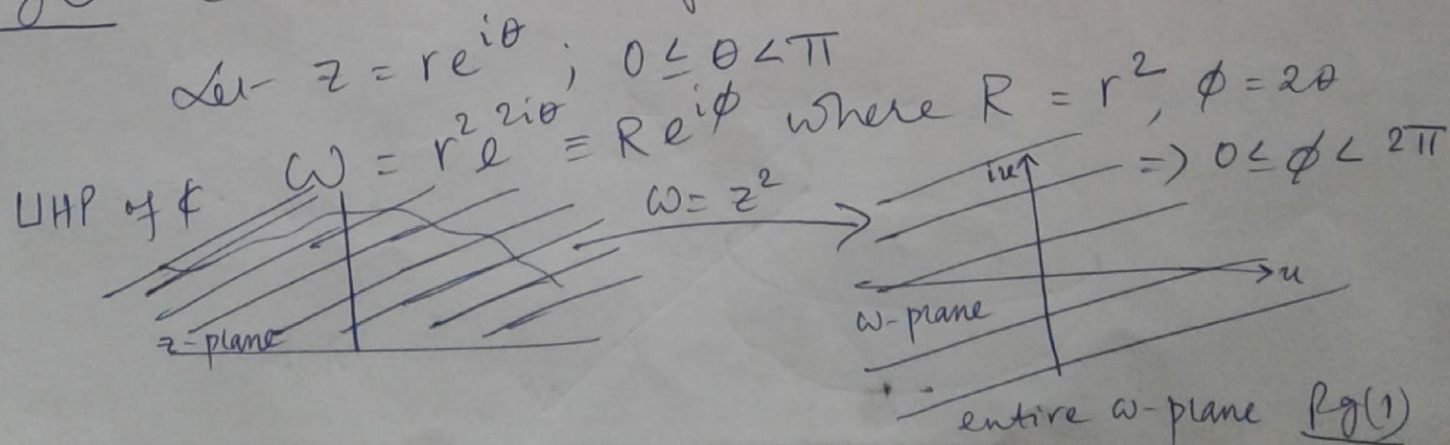 Let z = re^{iθ} ; 0 ≤ θ < π
ω = r²e^{2iθ} ≡ Re^{iϕ} where R = r², ϕ = 2θ
⇒ 0 ≤ ϕ < 2π
UHP of ₵
ω = z²
iv
u
z-plane
ω-plane
entire ω-plane Pg(1)